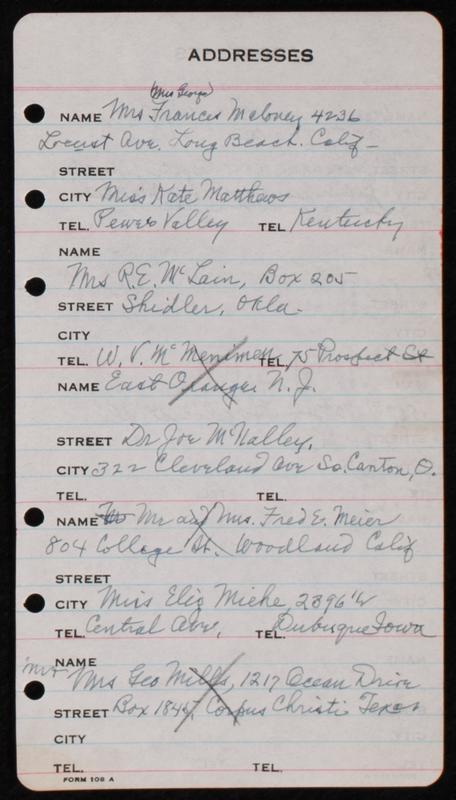 ADDRESSES
(Mrs George)
NAME Mrs Frances Maloney 4236
Locust Ave. Long Beach. Calif-
STREET
CITY Miss Kate Matthews
TEL. Pewee Valley TEL. Kentucky
NAME
Mrs R.E. McLain, Box 205
STREET Shidler, Okla.
CITY
TEL. W. V. McMenimen TEL. 75 Prospect St
NAME East Orange N. J.
STREET Dr Joe McNalley,
CITY 322 Cleveland Ave So. Canton, O.
TEL. TEL.
NAME Mr and Mrs. Fred E. Meier
804 College St. Woodland Calif
STREET
CITY Miss Eliz Miehe, 2896 1/2
TEL. Central Ave, TEL. Dubuque Iowa
NAME
Mrs Geo Mills, 1217 Ocean Drive
STREET Box 1845, Corpus Christi Texas
CITY
TEL. TEL.
FORM 108 A